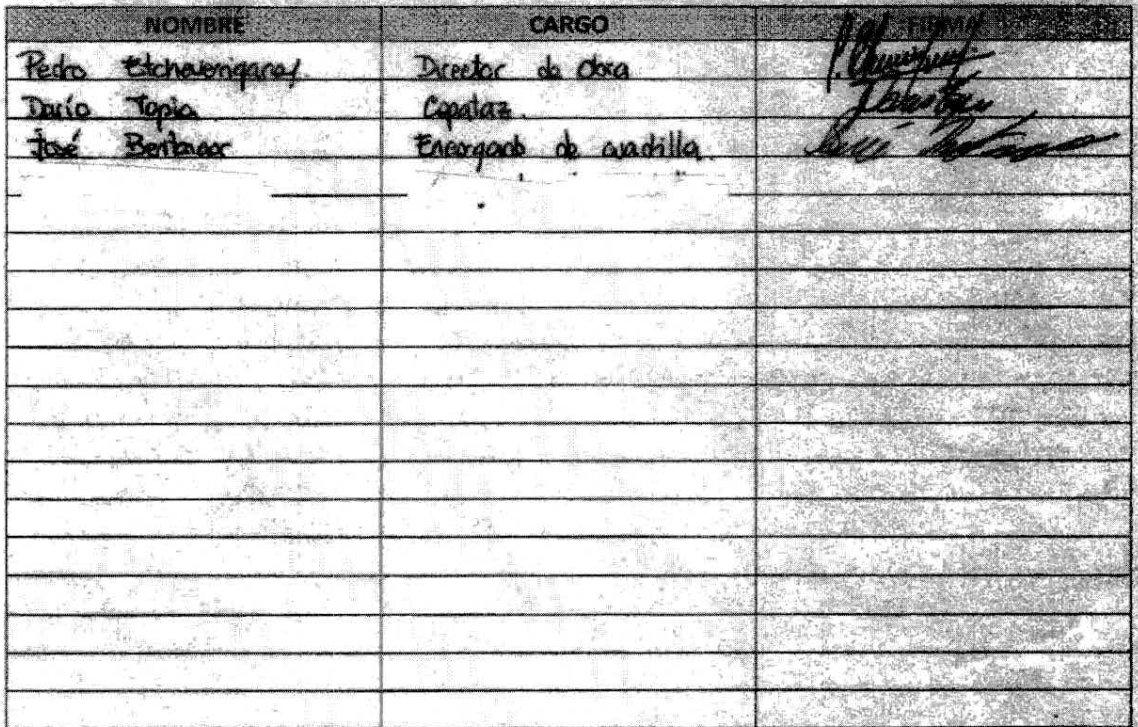 NOMBRE CARGO FIRMA
Pedro Etchevarrigaray. Director de Obra
Darío Tapia. Capataz.
José Director Encargado de cuadrilla.